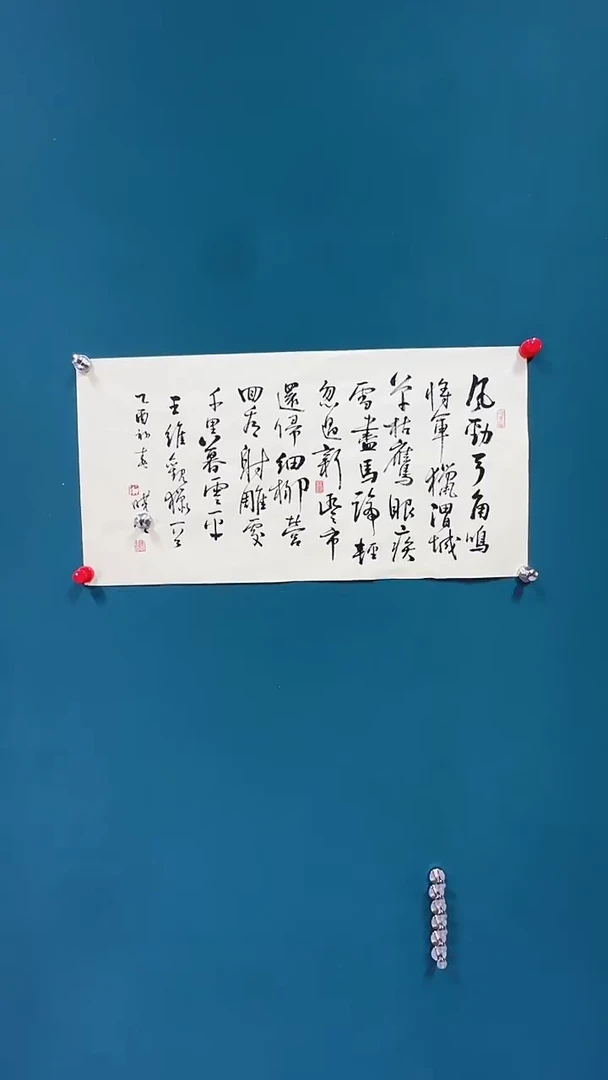 風勁弓角鳴
將軍獵渭城
草枯鷹眼疾
雪盡馬蹄輕
忽過新豐市
還歸細柳營
回看射雕處
千里暮雲平
王維觀獵一首
乙酉初春